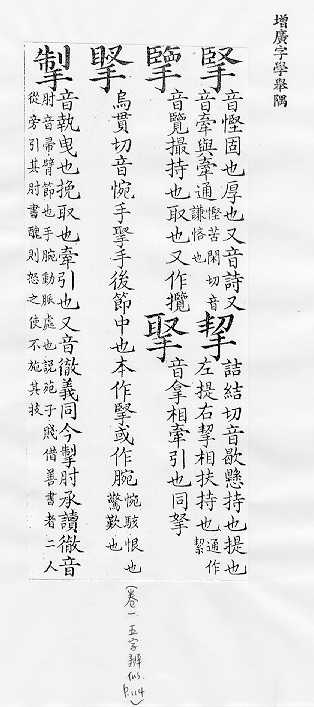 增廣字學舉隅
掔
音慳固也厚也又音詩又
音牽與牽通
慳苦閑切音
謙恡也
挈
詰結切音歇懸持也提也
左提右挈相扶持也
通作
絜
擥
音覽撮持也取也又作攬
音拿相牽引也同拏
烏貫切音惋手掔手後節中也本作掔或作腕
惋駭恨也
驚歎也
掣
音執曳也挽取也牽引也又音徹義同今掣肘承讀徹音
肘音帚臂節也手腕動脈處也說苑子賤借善書者二人
從旁引其肘書醜則怒之使不施其技
(卷一五字辨似 P.114)